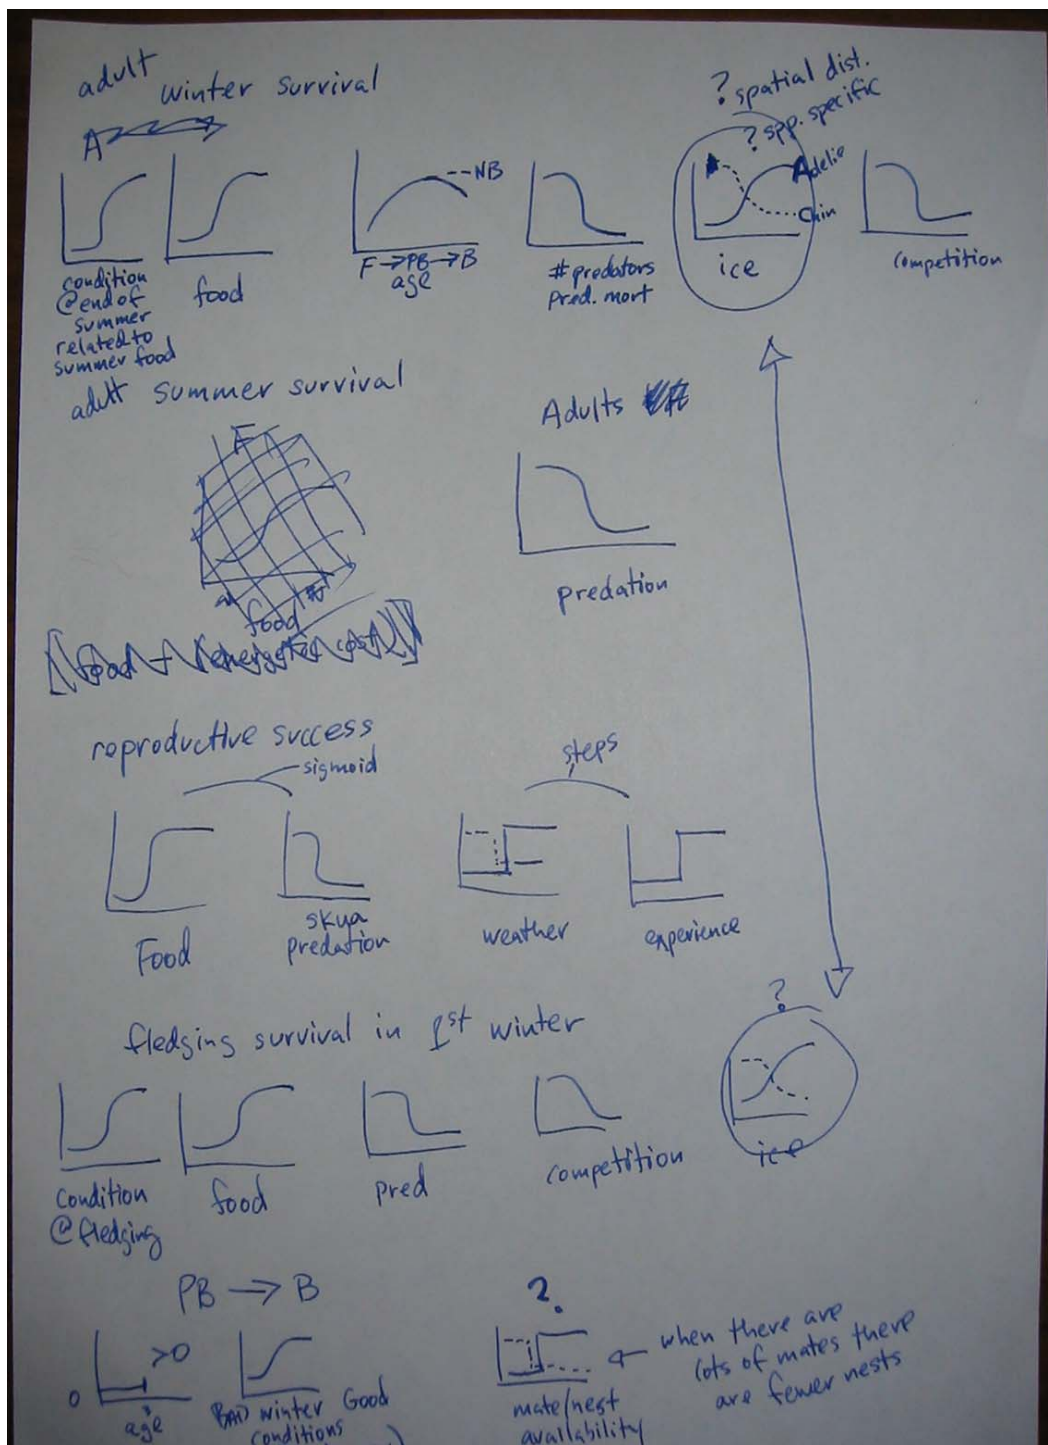 adult
winter survival
A
? spatial dist.
? spp. specific
NB
Adelie
Chin
F → PB → B
age
condition
@end of
summer
related to
summer food
food
# predators
Pred. mort
ice
competition
adult summer survival
Adults
F
predation
food
[food - (energetic cost)]
reproductive success
sigmoid
steps
Food
skua
predation
weather
experience
?
fledging survival in 1st winter
condition
@fledging
food
pred
competition
ice
PB → B
?
>0
0
age
BAD winter Good
conditions
mate/nest
availability
when there are
lots of mates there
are fewer nests